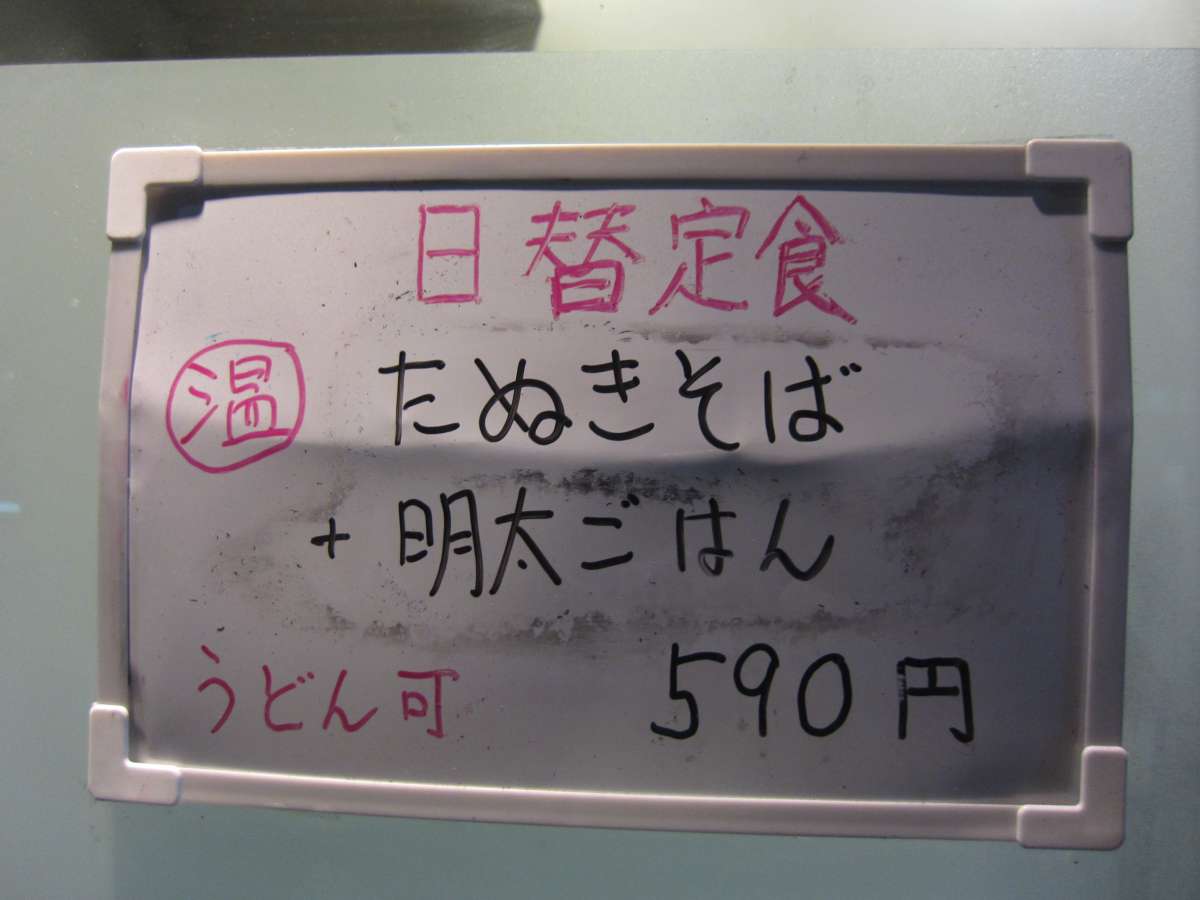 日替定食
温 たぬきそば
+ 明太ごはん
うどん可 590円